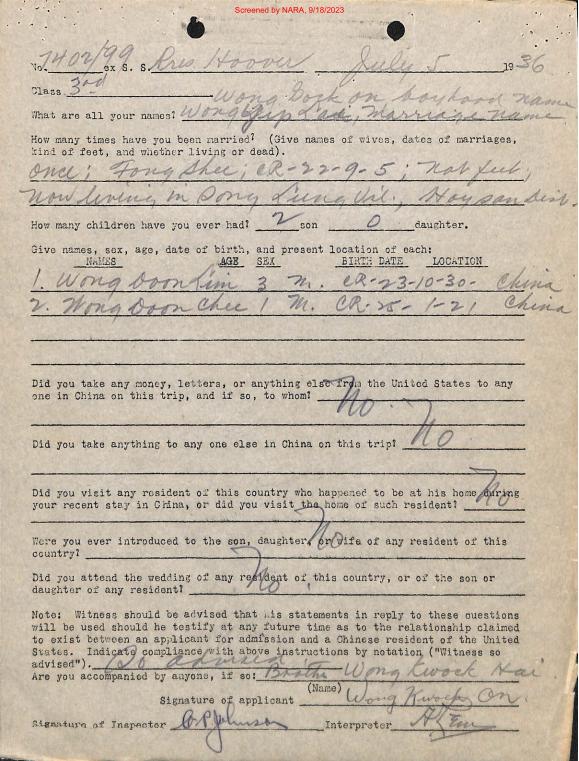 Screened by NARA, 9/18/2023
No. 7402/99 ex S. S. Pres Hoover July 5 1936
Class 3rd Wong Gock on boyhood name
What are all your names? Wong Yip Marriage name
How many times have you been married? (Give names of wives, dates of marriages,
kind of feet, and whether living or dead).
Once; Fong Shee, CR-22-9-5; nat feet;
now living in Dong Lung Vil., Hoysan Dist.
How many children have you ever had? 2 son 0 daughter.
Give names, sex, age, date of birth, and present location of each:
NAMES AGE SEX BIRTH DATE LOCATION
1. Wong Doon Lim 3 M. CR-23-10-30- China
2. Wong Doon Chee 1 M. CR-25-1-21 China
Did you take any money, letters, or anything else from the United States to any
one in China on this trip, and if so, to whom? No.
Did you take anything to any one else in China on this trip? No
Did you visit any resident of this country who happened to be at his home during
your recent stay in China, or did you visit the home of such resident? No
Were you ever introduced to the son, daughter, or wife of any resident of this
country? No
Did you attend the wedding of any resident of this country, or of the son or
daughter of any resident? No.
Note: Witness should be advised that his statements in reply to these questions
will be used should he testify at any future time as to the relationship claimed
to exist between an applicant for admission and a Chinese resident of the United
States. Indicate compliance with above instructions by notation ("Witness so
advised"). So advised.
Are you accompanied by anyone, if so: Brother Wong Kwock Hai
(Name)
Signature of applicant Wong Kwock On.
Signature of Inspector C P Johnson Interpreter